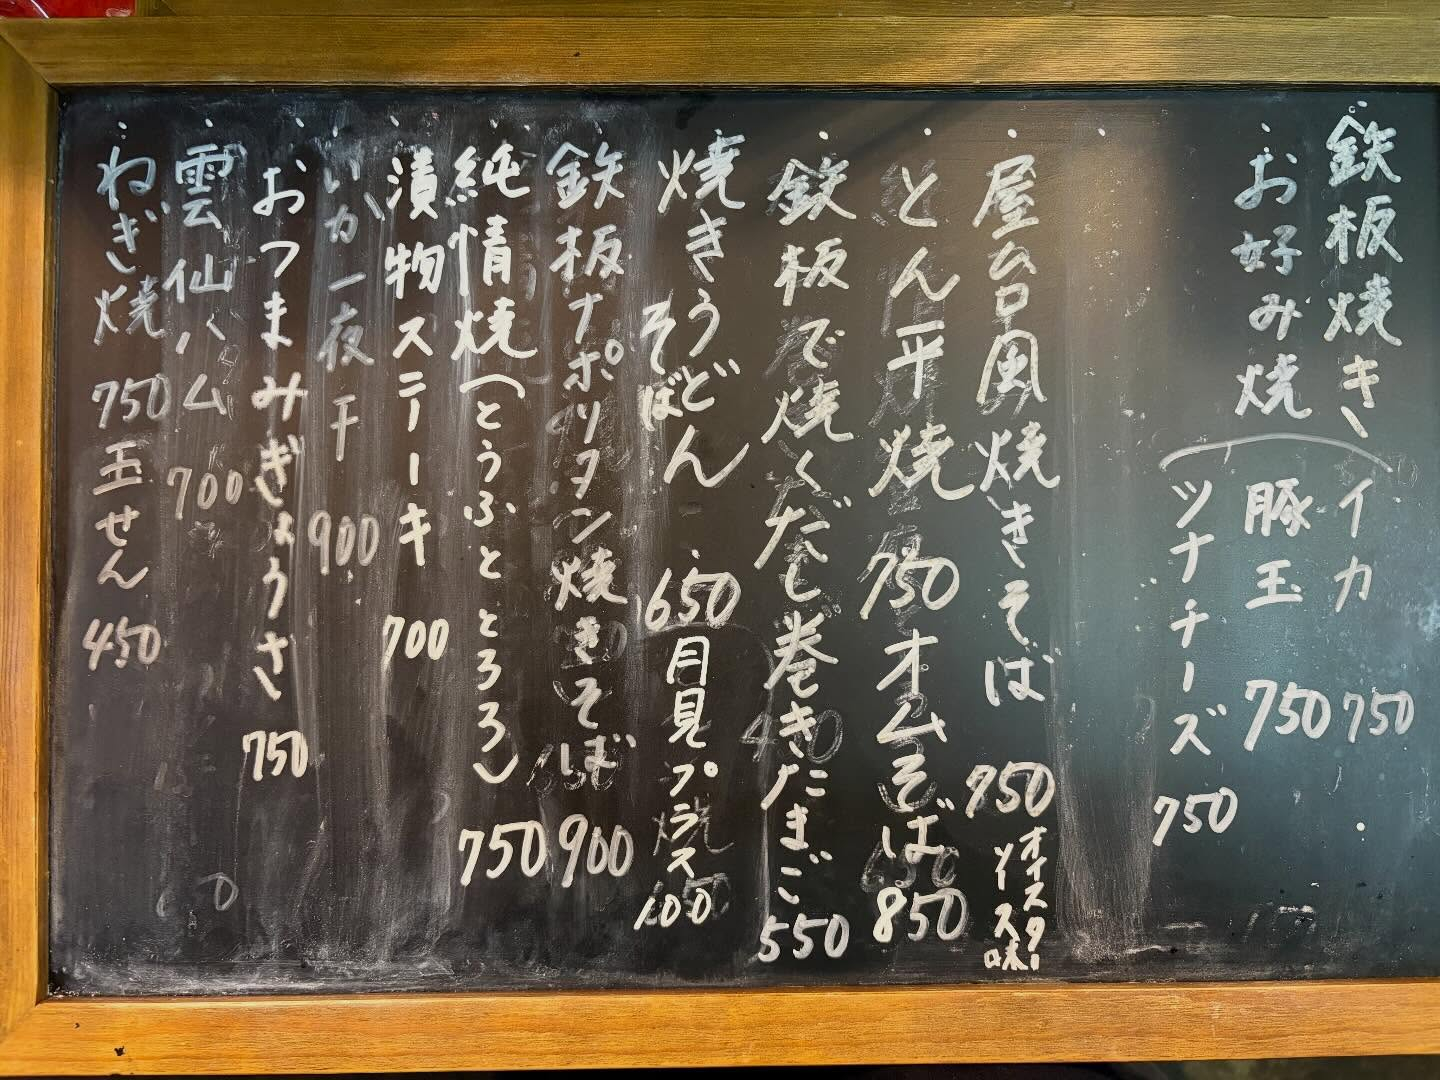 鉄板焼き
お好み焼
イカ 750
豚玉 750
ツナチーズ 750
屋台風焼きそば 750 オイスターソース味
とん平焼 750 オムそば 850
鉄板で焼くだし巻きたまご 550
焼きうどん そば 650 月見プラス100
鉄板ナポリタン焼きそば 900
純情焼(とうふととろろ) 750
漬物ステーキ 700
いか一夜干 900
おつまみぎょうさ 750
雲仙ハム 700
ねぎ焼 750 玉せん 450